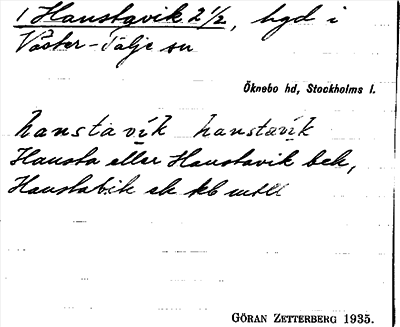 1 Hanstavik 2 1/2, hgd i
Väster-Tälje sn
Öknebo hd, Stockholms l.
hanstavik hanstavik
Hansta eller Hanstavik bek,
Hanstavik ek kb
GÖRAN ZETTERBERG 1935.